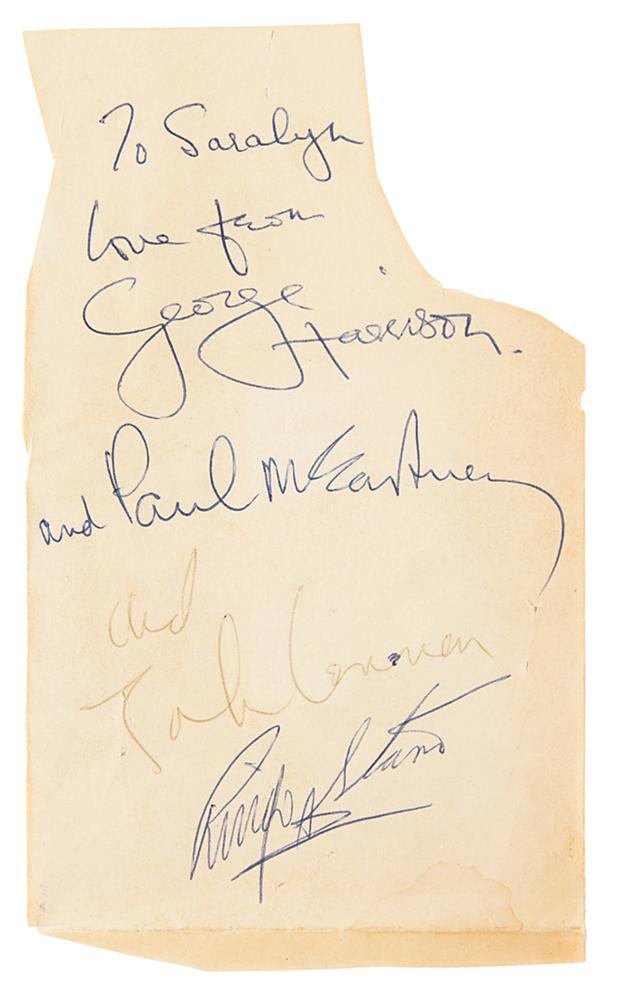 To Saralyn
love from
George Harrison.
and Paul McCartney
and
John Lennon
Ringo Starr